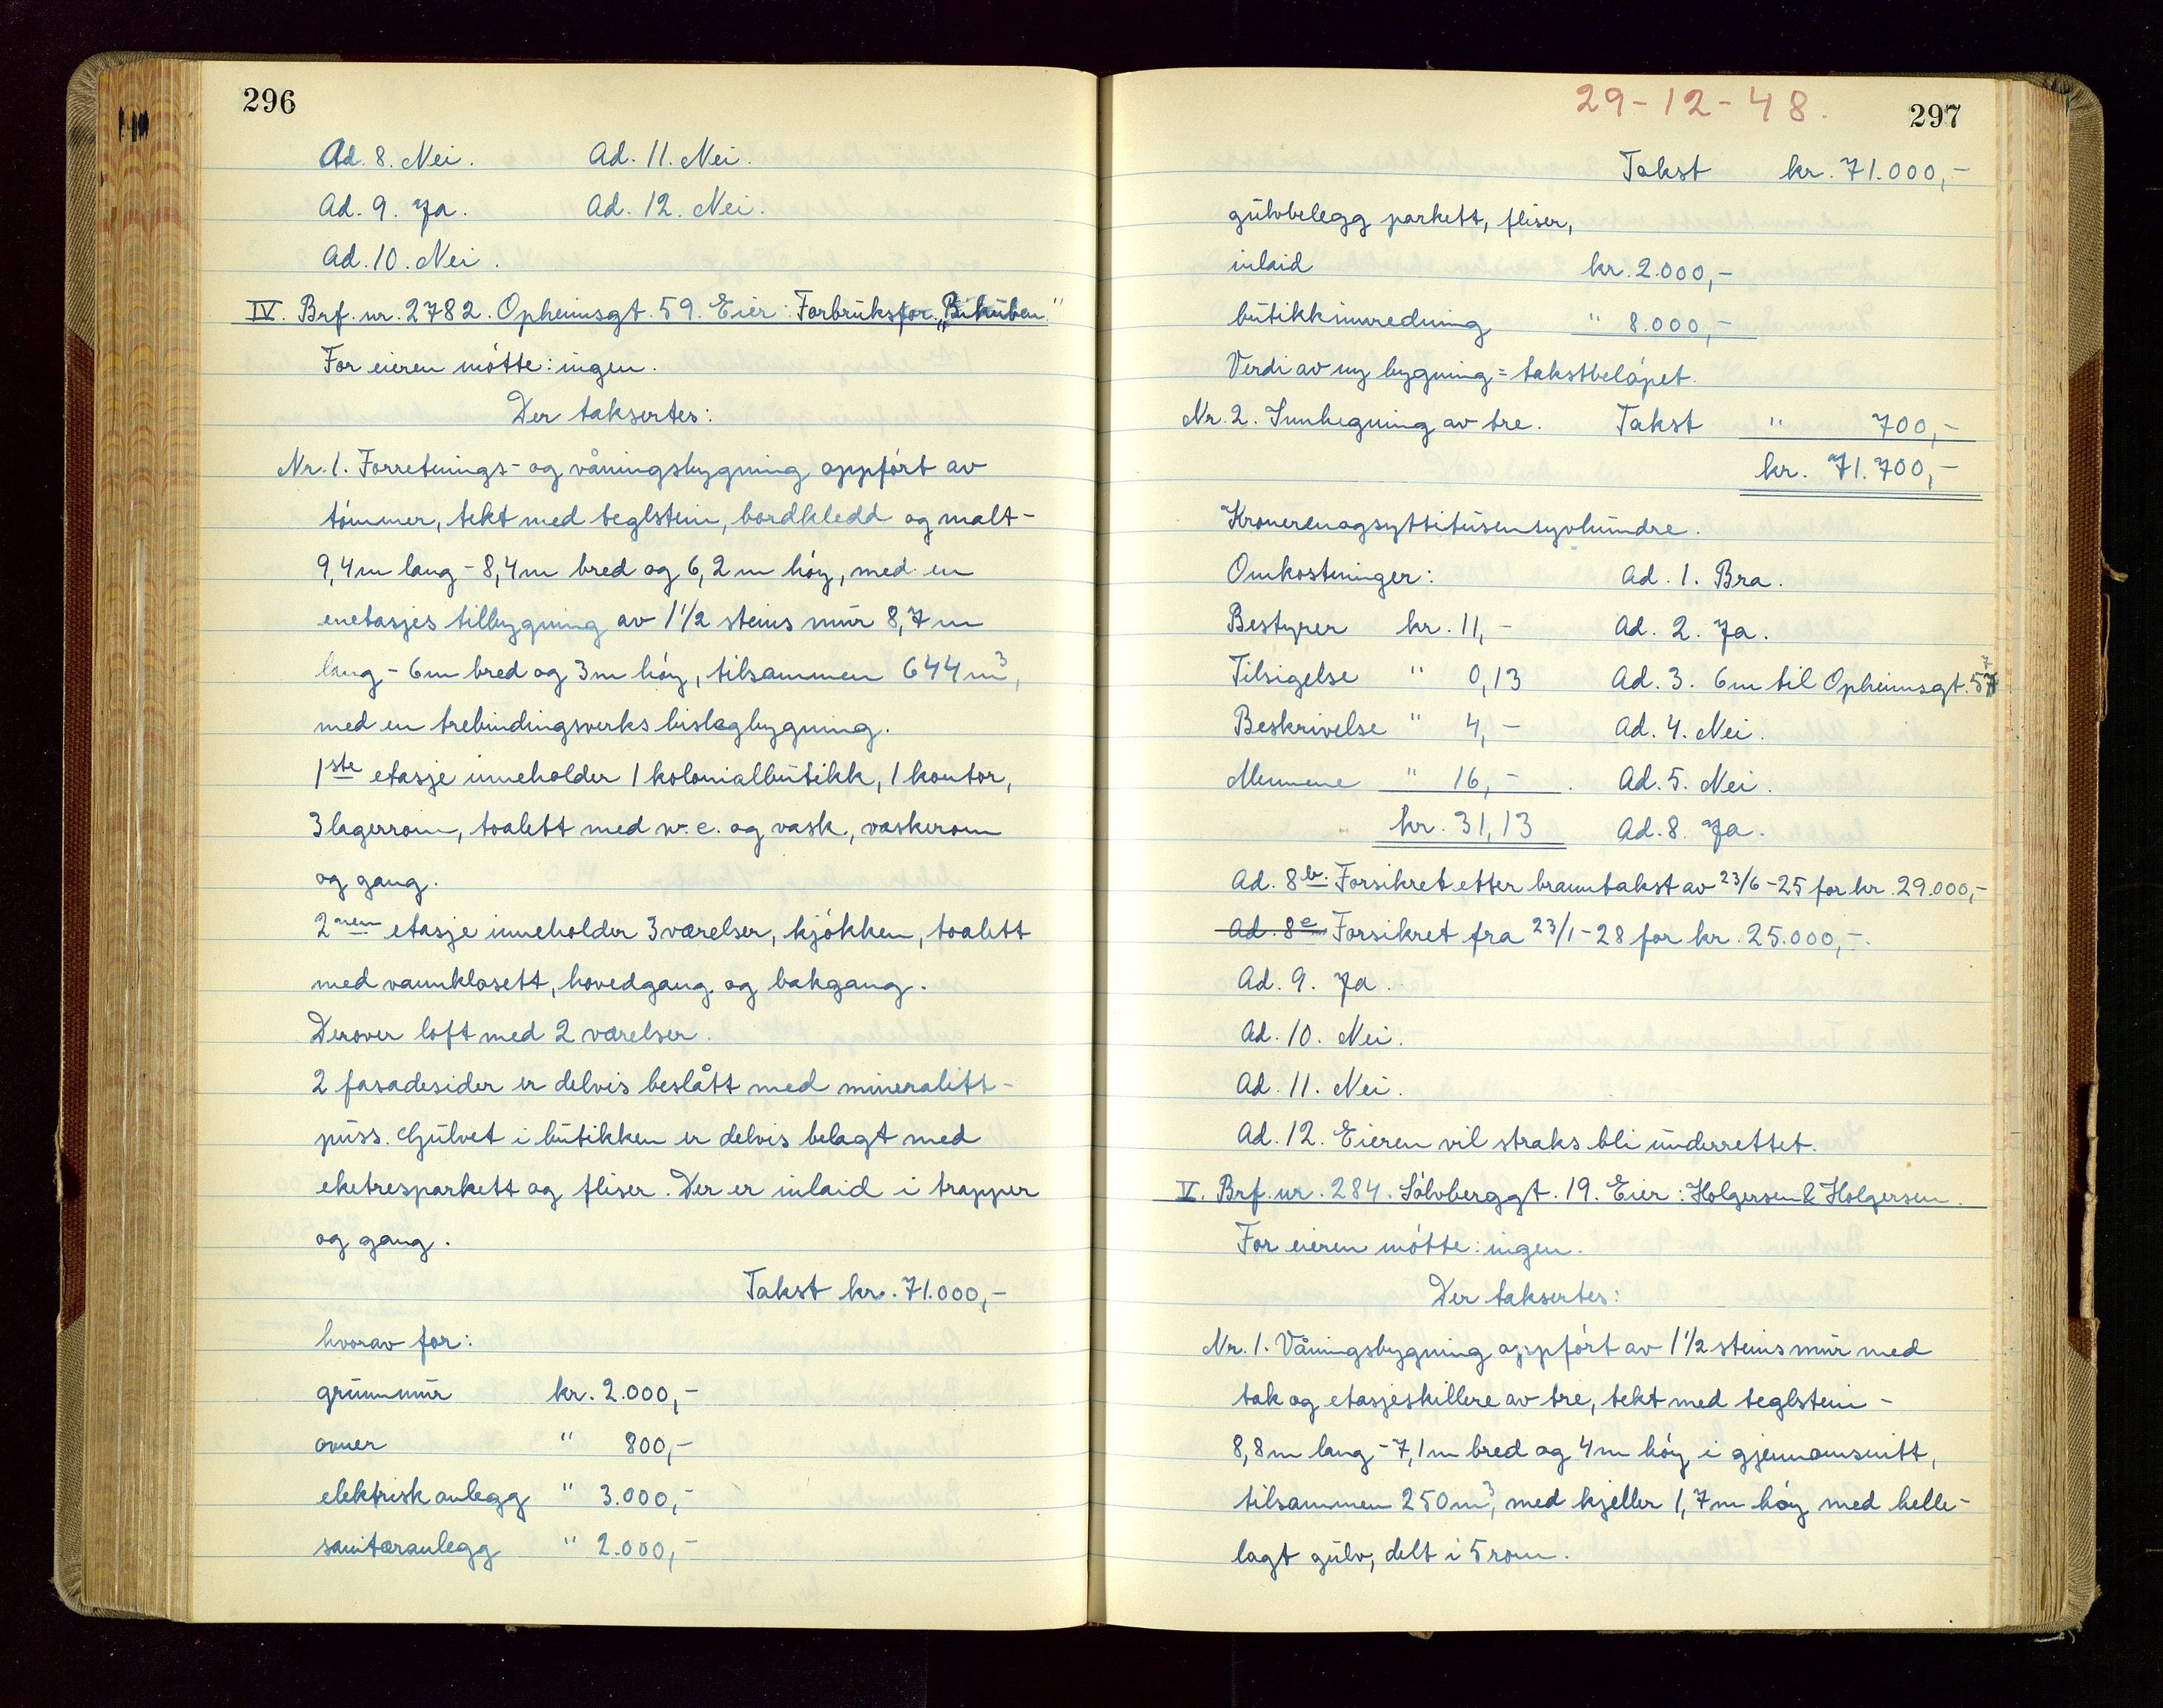 296
Ad. 8. Nei. Ad. 11. Nei.
Ad. 9. Ja. Ad. 12. Nei.
Ad. 10. Nei.
IV. Brf. nr. 2782. Opheimsgt. 59. Eier: Forbruksfor. „Bikuben"
For eieren møtte: ingen.
Der taksertes:
Nr. 1. Forretnings- og våningsbygning oppført av
tømmer, tekt med teglstein, bordkledd og malt -
9,4 m lang - 8,4 m bred og 6,2 m høy, med en
enetasjes tilbygning av 1 1/2 steins mur 8,7 m
lang - 6 m bred og 3 m høy, tilsammen 644 m³,
med en trebindingsverks bislagbygning.
1ste etasje inneholder 1 kolonialbutikk, 1 kontor,
3 lagerrom, toalett med w.c. og vask, vaskerom
og gang.
2nen etasje inneholder 3 værelser, kjøkken, toalett
med vannklosett, hovedgang og bakgang.
Derover loft med 2 værelser.
2 fasadesider er delvis beslått med mineralitt-
puss. Gulvet i butikken er delvis belagt med
eketresparkett og fliser. Der er inlaid i trapper
og gang.
Takst kr. 71.000,-
hvorav for:
grunnmur kr. 2.000,-
ovner " 800,-
elektrisk anlegg " 3.000,-
sanitæranlegg " 2.000,-
29-12-48.
297
Takst kr. 71.000,-
gulvbelegg parkett, fliser,
inlaid kr. 2.000,-
butikkinnredning " 8.000,-
Verdi av ny bygning = takstbeløpet.
Nr. 2. Innhegning av tre. Takst " 700,-
kr. 71.700,-
Kronerenogsyttitusensyvhundre.
Omkostninger: Ad. 1. Bra.
Bestyrer kr. 11,- Ad. 2. Ja.
Tilsigelse " 0,13 Ad. 3. 6 m til Opheimsgt. 57
Beskrivelse " 4,- Ad. 4. Nei.
Mennene " 16,- . Ad. 5. Nei.
kr. 31,13 Ad. 8. Ja.
Ad. 8b. Forsikret etter branntakst av 23/6-25 for kr. 29.000,-
Ad. 8c Forsikret fra 23/1-28 for kr. 25.000,-.
Ad. 9. Ja.
Ad. 10. Nei.
Ad. 11. Nei.
Ad. 12. Eieren vil straks bli underrettet.
V. Brf. nr. 284. Sølvberggt. 19. Eier: Holgersen & Holgersen.
For eieren møtte: ingen.
Der taksertes:
Nr. 1. Våningsbygning oppført av 1 1/2 steins mur med
tak og etasjeskillere av tre, tekt med teglstein -
8,8 m lang - 7,1 m bred og 4 m høy i gjennomsnitt,
tilsammen 250 m³, med kjeller 1,7 m høy med helle-
lagt gulv, delt i 5 rom.